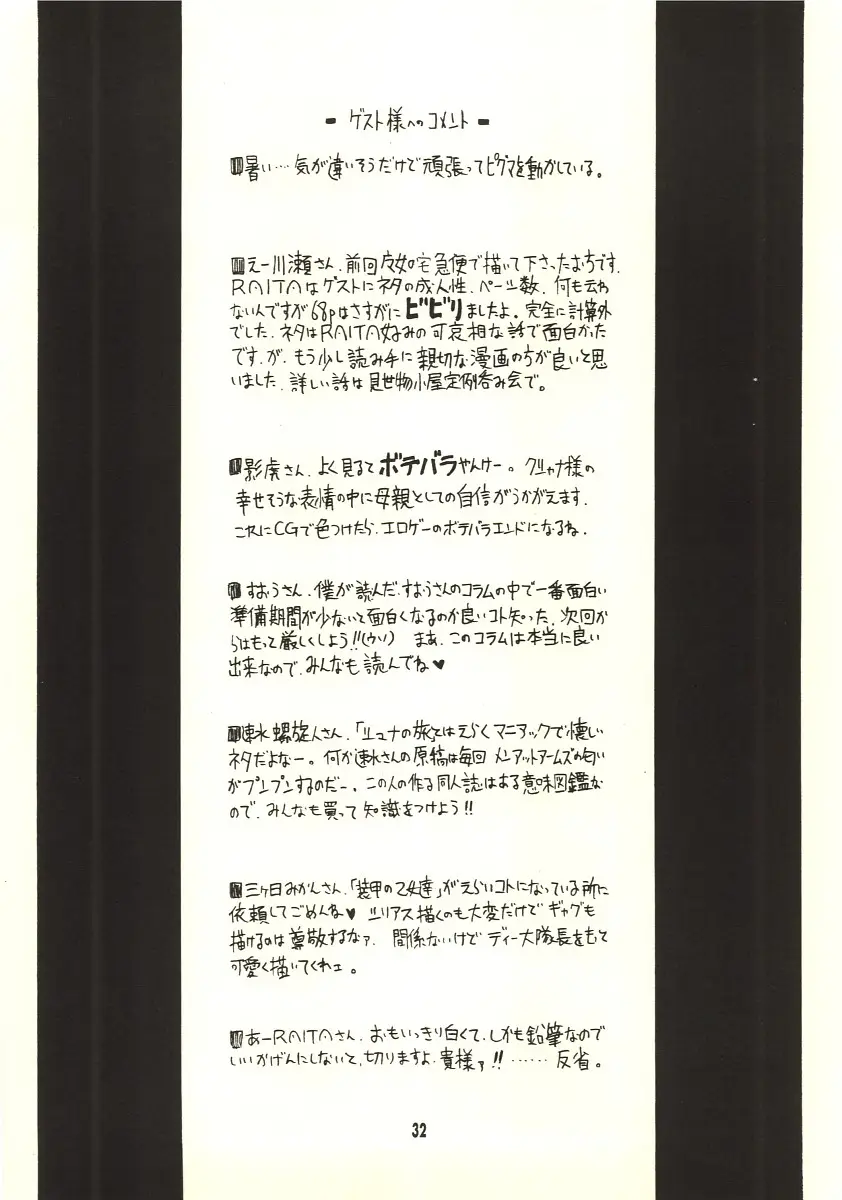 - ゲスト様へのコメント -
暑い…気が違いそうだけで頑張ってピグマを動かしている。
えー川瀬さん、前回魔女の宅急便で描いて下さったまちです。
RAITAはゲストにネタの成人性、ページ数、何も云わ
ないんですが68pはさすがにビビりましたよ。完全に計算外
でした。ネタはRAITA好みの可哀相な話で面白かった
ですが、もう少し読み手に親切な漫画の方が良いと思
いました。詳しい話は見世物小屋定例呑み会で。
影虎さん、よく見るてボテバラやんけー。クリャナ様の
幸せそうな表情の中に母親としての自信がうかがえます。
これにCGで色つけたら、エロゲーのボテバラエンドになるね。
すおうさん、僕が読んだ、すおうさんのコラムの中で一番面白い
準備期間が少ないと面白くなるのか良いコト知った、次回か
らはもって厳しくしよう!!(ウソ) まあ、このコラムは本当に良い
出来なので、みんなも読んでね♥
速水螺旋人さん、「リュナの旅」とはえらくマニアックで懐しい
ネタだよなー。何か速水さんの原稿は毎回メンアットアームズの匂い
がプンプンするのだー、この人の作る同人誌はある意味図鑑な
ので、みんなも買って知識をつけよう!!
三ヶ日みかんさん、「装甲の乙女達」がえらいコトになっている所に
依頼してごめんね♥ シリアス描くのも大変だけでギャグも
描けるのは尊敬するなァ、関係ないけでディー大隊長をもて
可愛く描いてくれェ。
あーRAITAさん、おもいっきり白くて、しかも鉛筆なので
いいかげんにしないと、切りますよ、貴様ァ!!……反省。
32